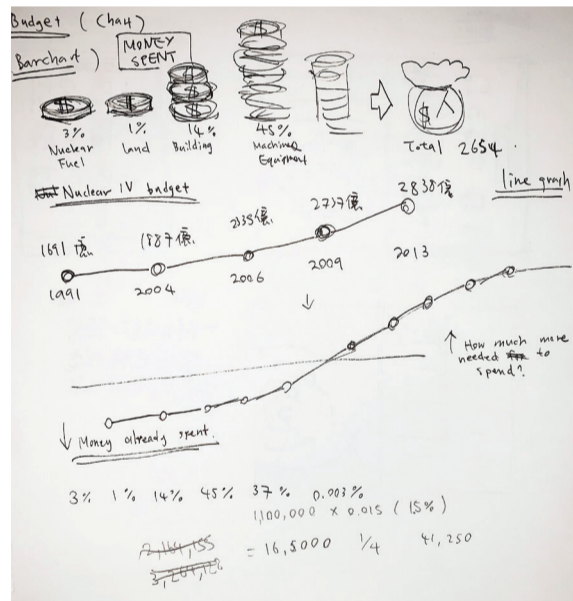 Budget (Chart
Barchart)
MONEY
SPENT
$ $ $
3% 1% 14% 45%
Nuclear Fuel
Land
Building
Machine
Equipment
$
Total 2654.
Nuclear IV budget
line graph
1691億 1887億 2335億 2737億 2838億
1991 2004 2006 2009 2013
↓
↑ How much more
needed to
spend?
↓ Money already spent.
3% 1% 14% 45% 37% 0.003%
1,100,000 x 0.015 (15%)
2,164,155 = 16,5000 1/4 41,250